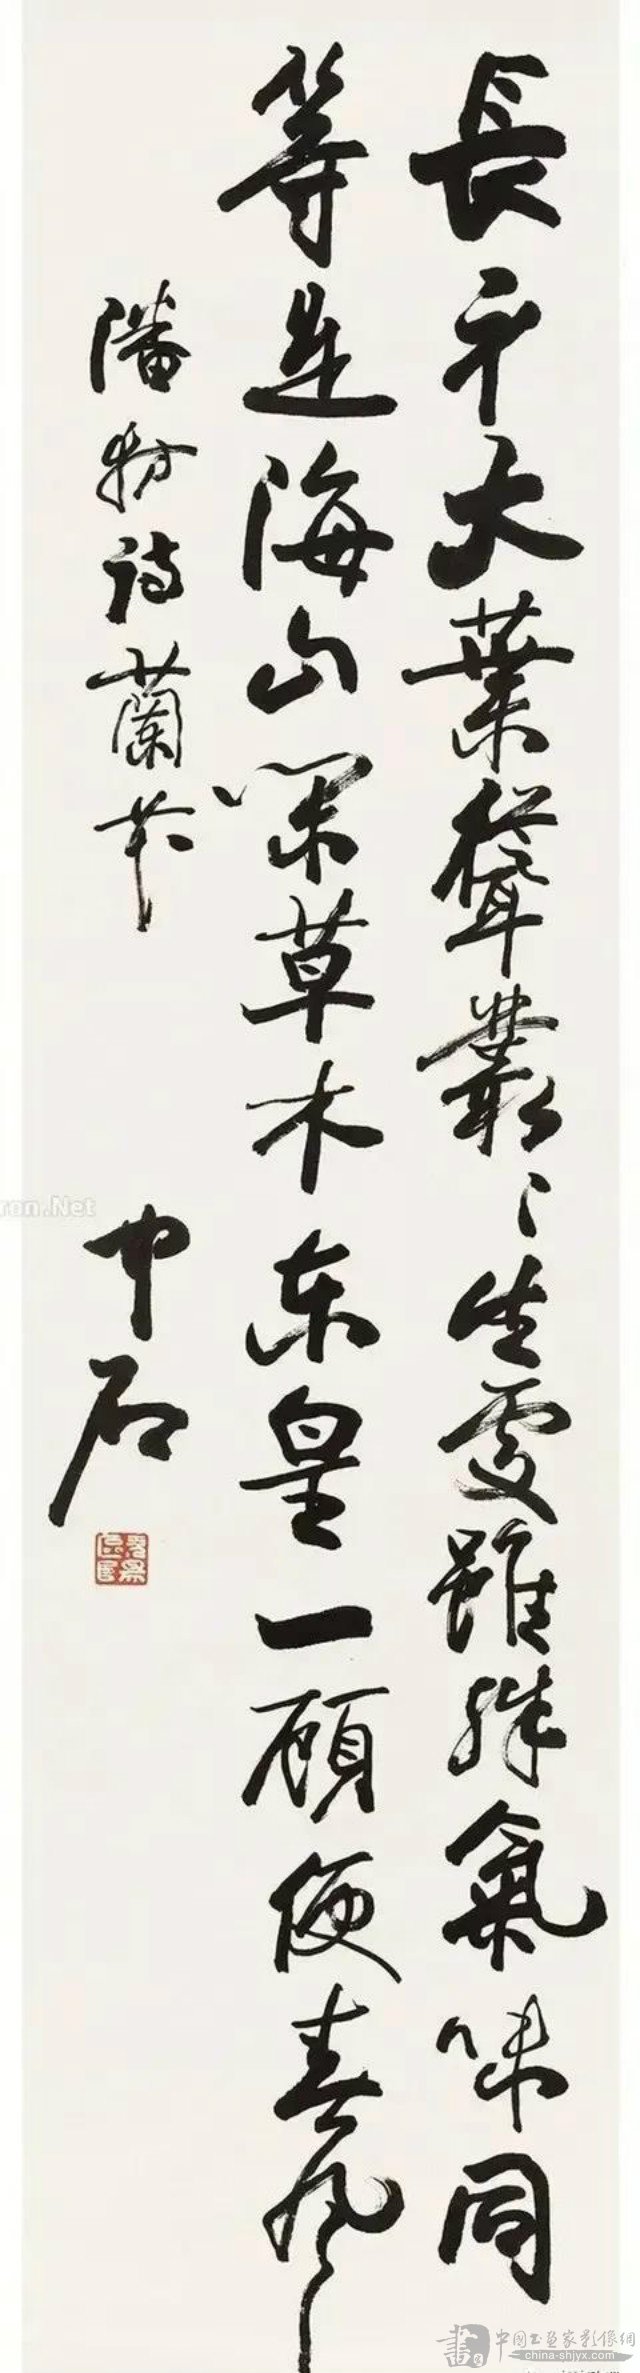 長干大葉聳叢〻生處雖殊氣味同
等是海山閑草木東皇一顧便春風
潘牥詩蘭花
中石
ron.Net
書 中国书画家影像網
china-shjyx.com